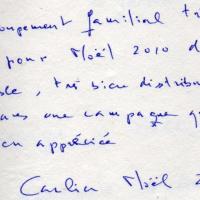 oupement familial tr
pour Noël 2010 d
ble, très bien distribu
ans une campagne qu
en appréciée
Carlier Noël 2